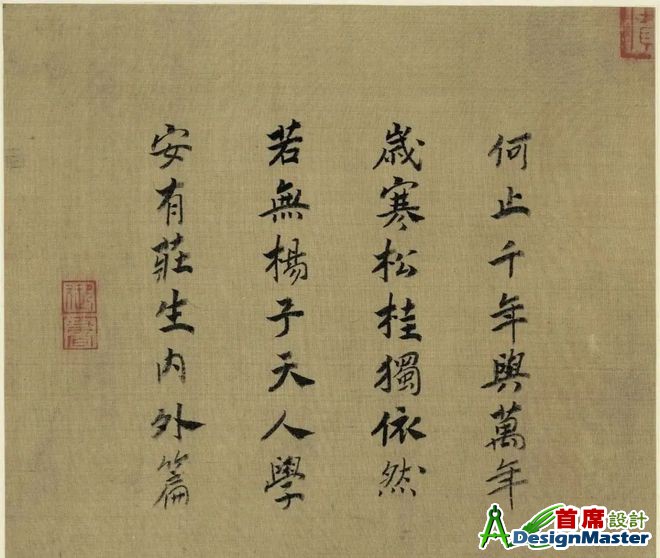 何止千年與萬年
歲寒松桂獨依然
若無楊子天人學
安有莊生內外篇
首席設計
DesignMaster